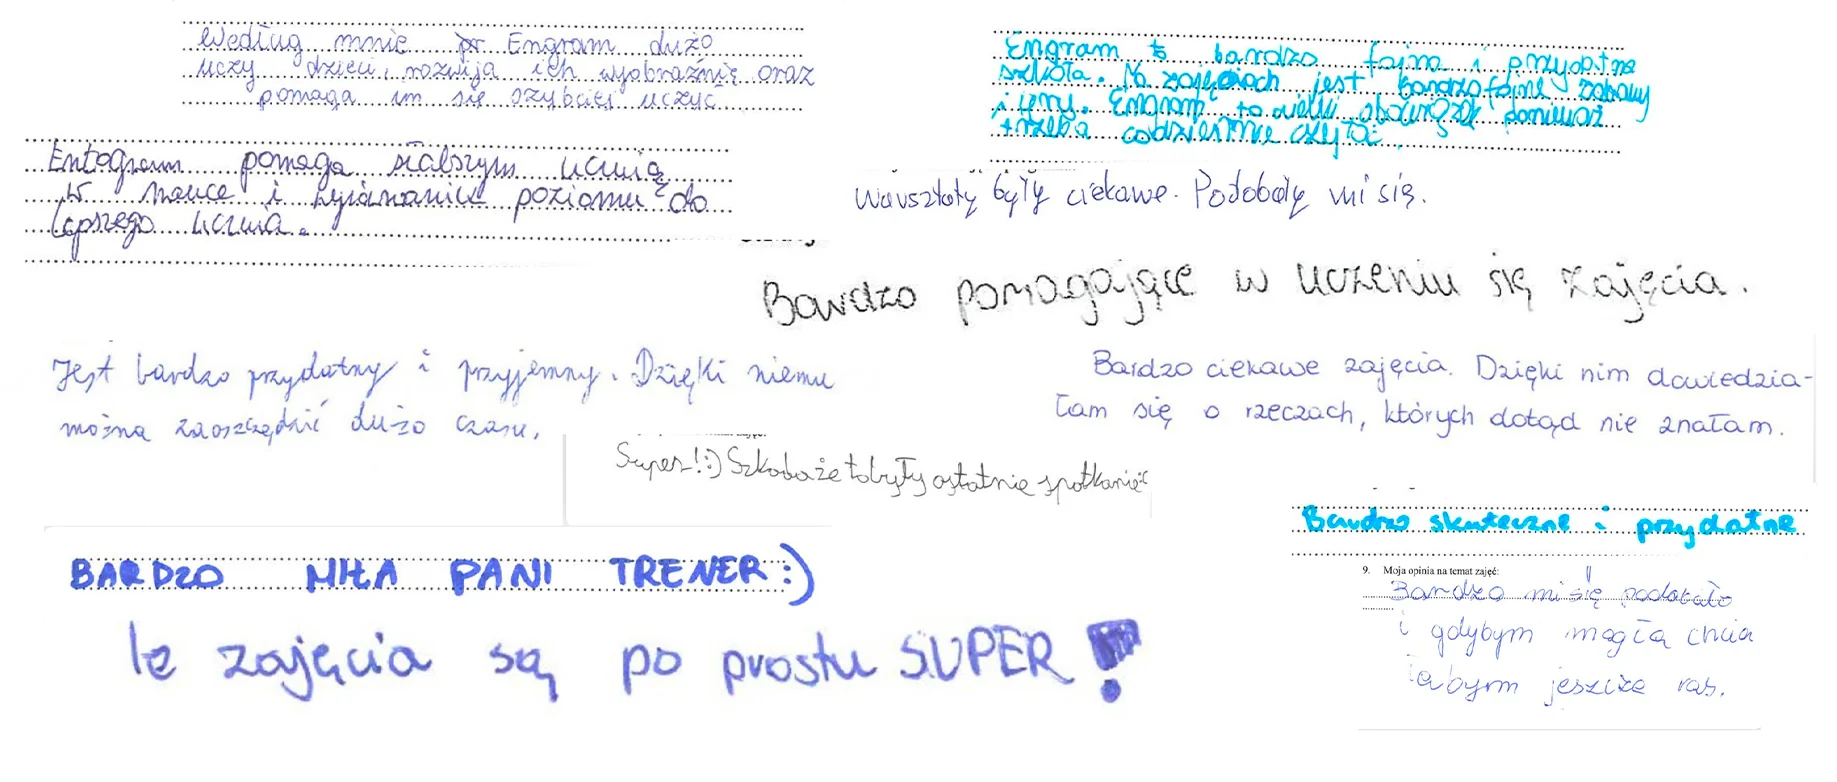 Według mnie pr Engram dużo
uczy dzieci, rozwija ich wyobraźnię oraz
pomaga im się szybciej uczyć
Engram to bardzo fajna i przydatna
szkoła. Na zajęciach jest bardzo fajne zabawy
i gry. Engram to wielki obowiązek ponieważ
trzeba codziennie czytać.
Entogram pomaga słabszym ucznią
w nauce i wyrównaniu poziomu do
lepszego ucznia.
Warsztaty były ciekawe. Podobały mi się.
Bardzo pomagające w uczeniu się zajęcia.
Jest bardzo przydatny i przyjemny. Dzięki niemu
można zaoszczędzić dużo czasu.
Bardzo ciekawe zajęcia. Dzięki nim dowiedzia-
łam się o rzeczach, których dotąd nie znałam.
Super!:) Szkoda że to były ostatnie spotkanie
Bardzo skuteczne i przydatne
BARDZO MIŁA PANI TRENER:)
9. Moja opinia na temat zajęć:
Bardzo mi się podobało
i gdybym mogła chcia
łabym jeszcze raz.
te zajęcia są po prostu SUPER!